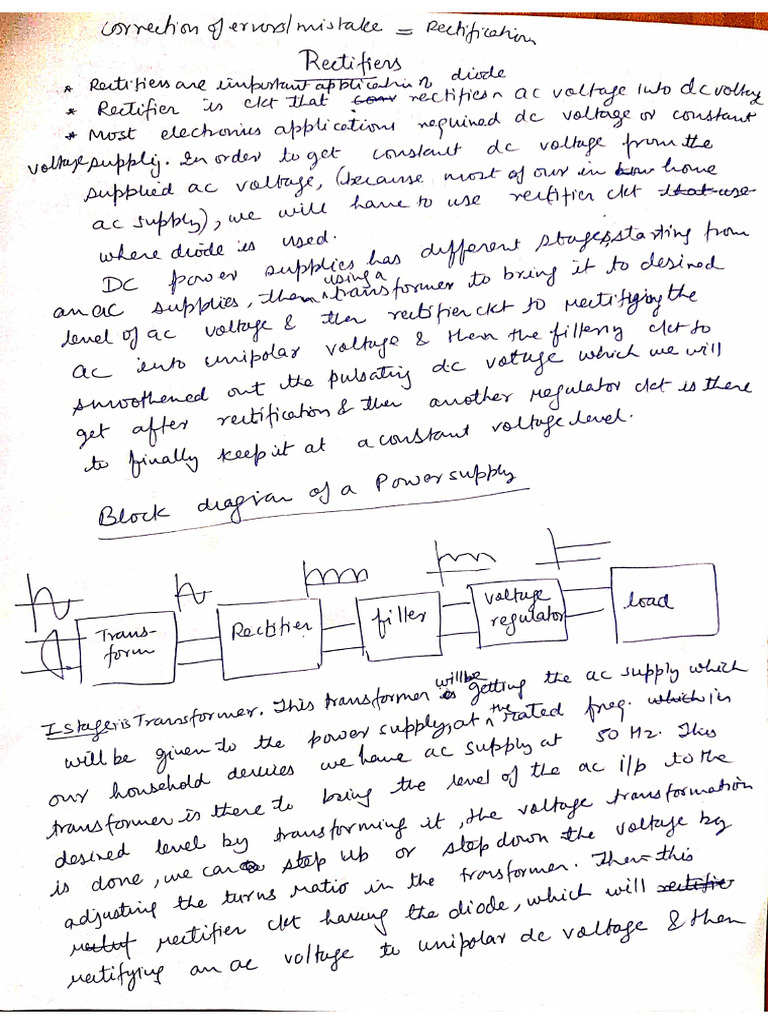 correction of errors/mistake = Rectification
Rectifiers
* Rectifiers are important application of diode
* Rectifier is ckt that conv rectifies ac voltage into dc voltag
* Most electronics applications required dc voltage or constant
voltage supply. In order to get constant dc voltage from the
supplied ac voltage, (because most of our in home
ac supply), we will have to use rectifier ckt that use
where diode is used.
DC power supplies has different stages, starting from
an ac supplies, then using a transformer to bring it to desired
level of ac voltage & then rectifier ckt to rectifying the
ac into unipolar voltage & then the filtering ckt to
smoothened out the pulsating dc voltage which we will
get after rectification & then another regulator ckt is there
to finally keep it at a constant voltage level.
Block diagram of a Power supply
Trans-
form
Rectifier
filter
voltage
regulator
load
I stage is Transformer. This transformer is will be getting the ac supply which
will be given to the power supply, at the rated freq. which in
our household devices we have ac supply at 50 Hz. This
transformer is there to bring the level of the ac i/p to the
desired level by transforming it, the voltage transformation
is done, we can step up or step down the voltage by
adjusting the turns ratio in the transformer. Then this
rectifier ckt having the diode, which will rectifie
rectifying an ac voltage to unipolar dc voltage & then